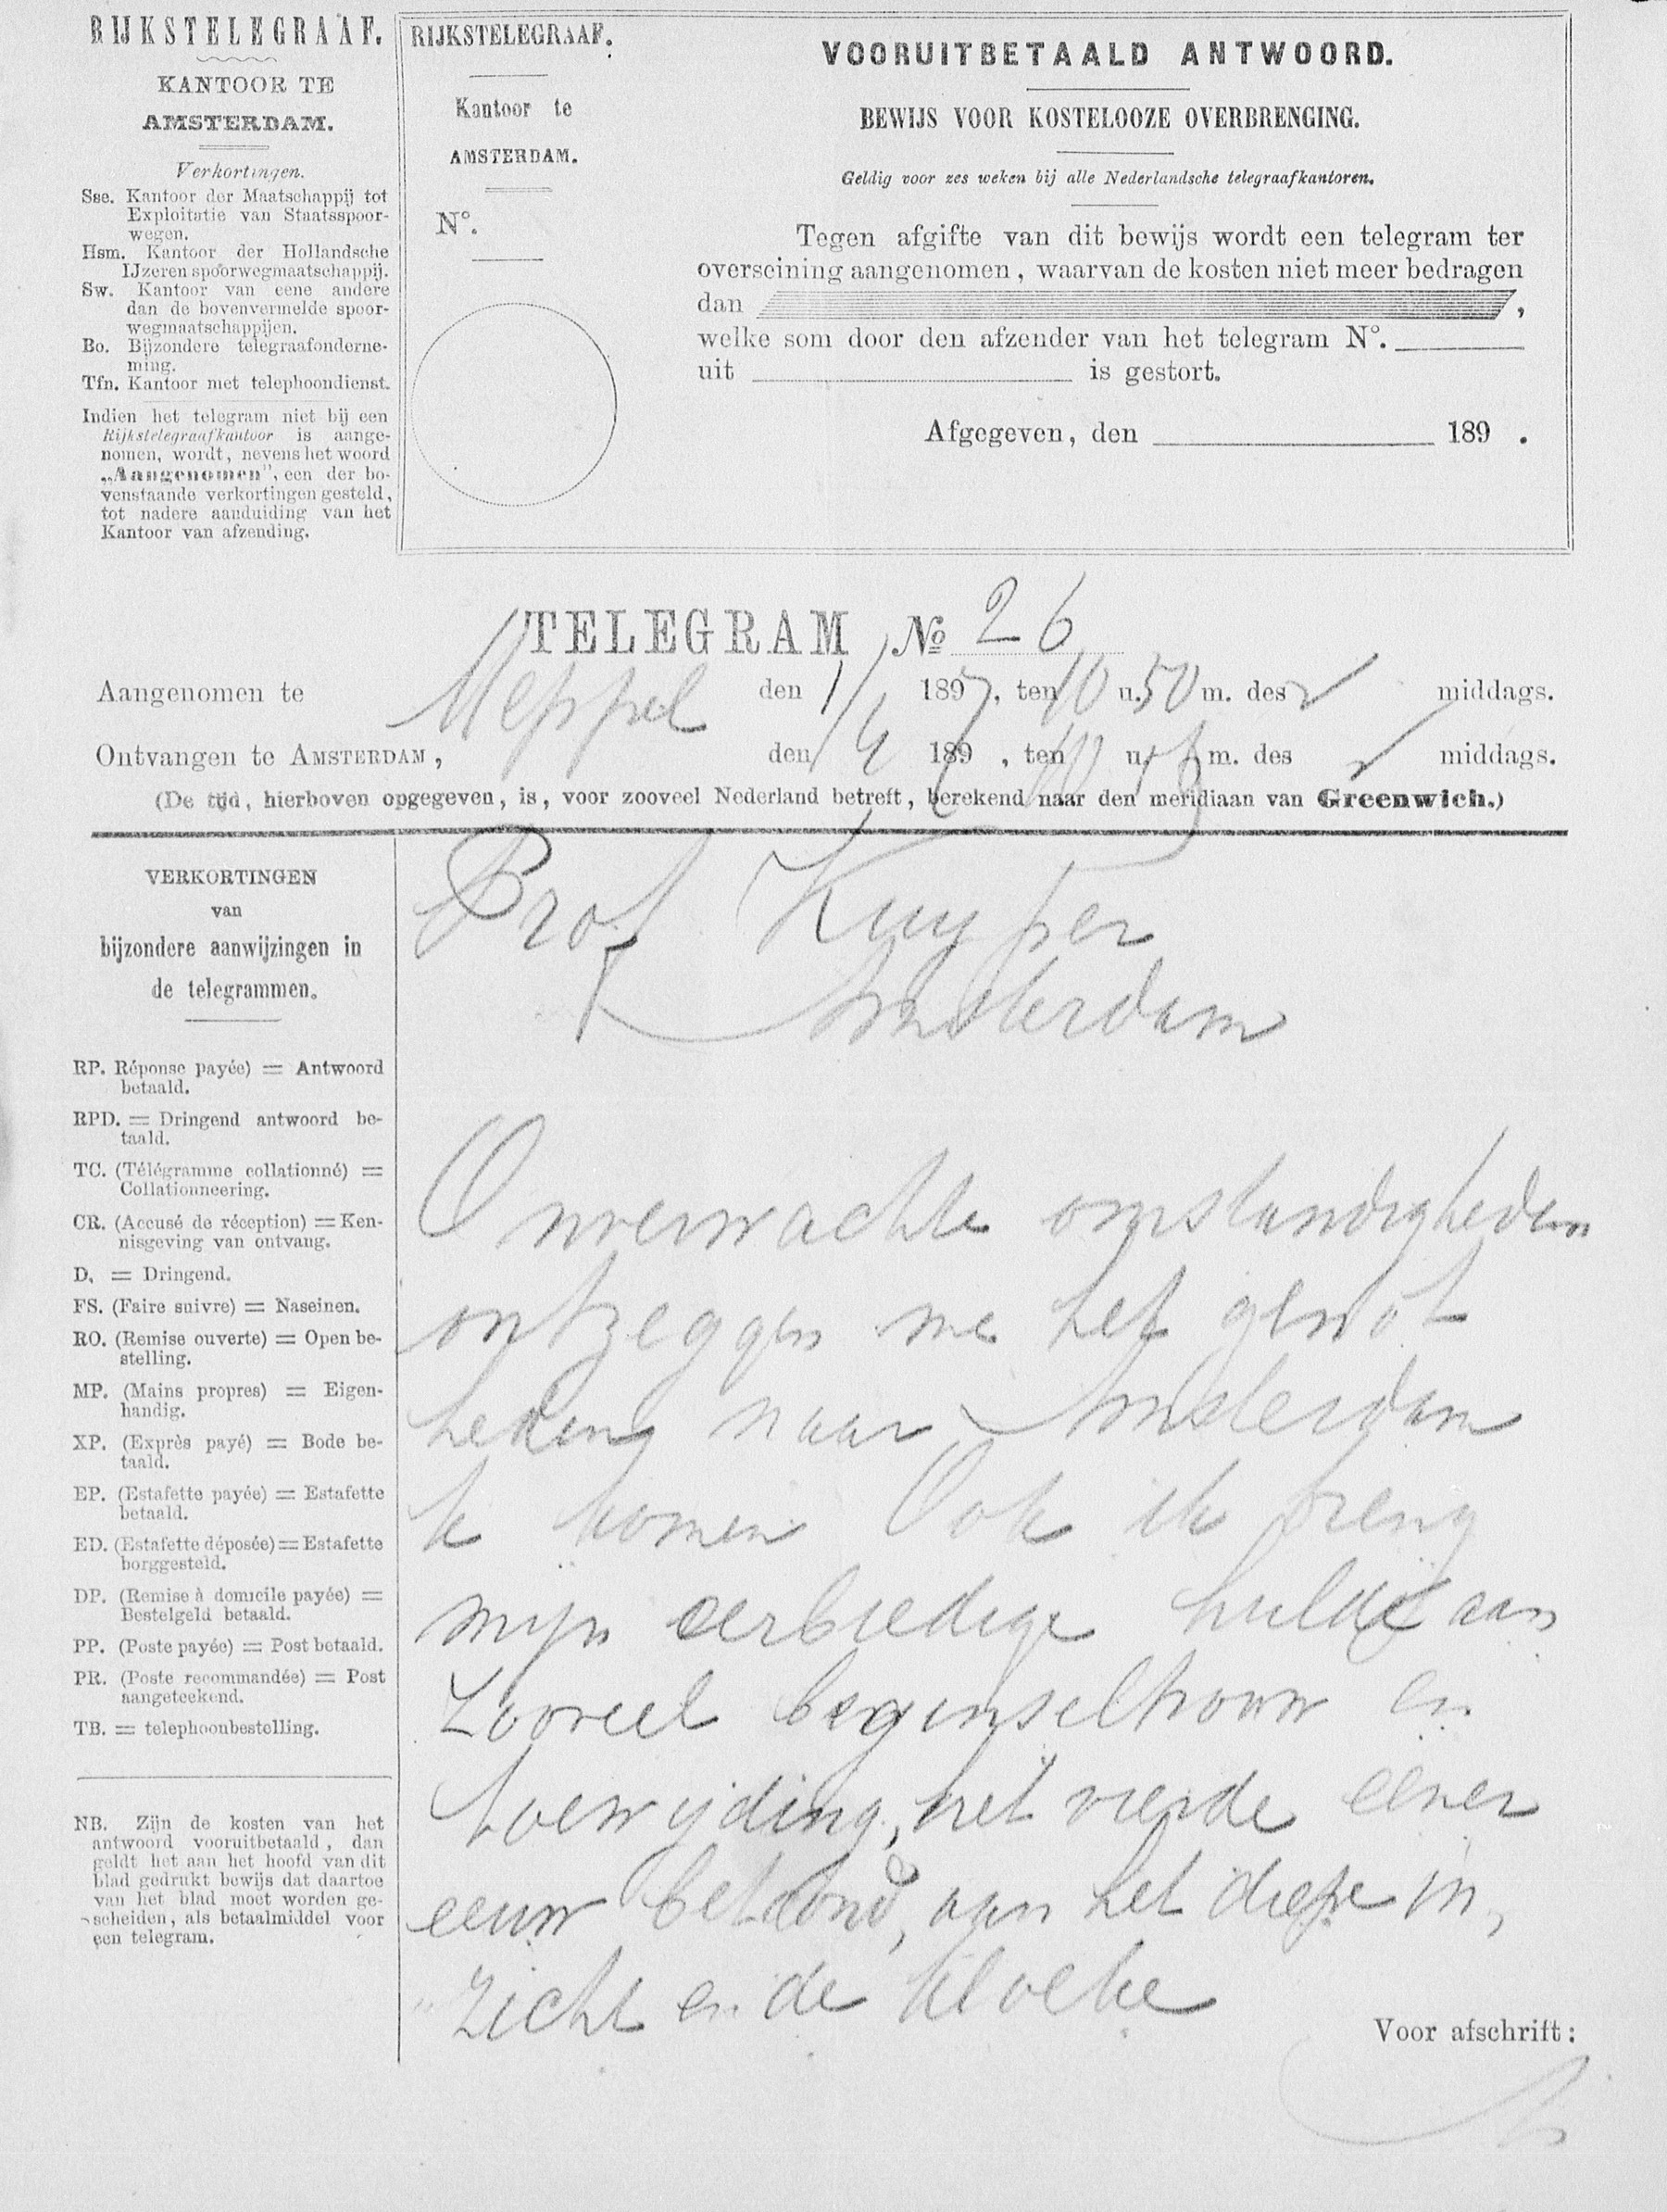 RIJKSTELEGRAAF.
KANTOOR TE
AMSTERDAM.
Verkortingen.
Sse. Kantoor der Maatschappij tot
Exploitatie van Staatsspoor-
wegen.
Hsm. Kantoor der Hollandsche
IJzeren spoorwegmaatschappij.
Sw. Kantoor van eene andere
dan de bovenvermelde spoor-
wegmaatschappijen.
Bo. Bijzondere telegraafonderne-
ming.
Tfn. Kantoor met telephoondienst.
Indien het telegram niet bij een
Rijkstelegraafkantoor is aange-
nomen, wordt, nevens het woord
„Aangenomen", een der bo-
venstaande verkortingen gesteld,
tot nadere aanduiding van het
Kantoor van afzending.
RIJKSTELEGRAAF.
Kantoor te
AMSTERDAM.
N°.
VOORUITBETAALD ANTWOORD.
BEWIJS VOOR KOSTELOOZE OVERBRENGING.
Geldig voor zes weken bij alle Nederlandsche telegraafkantoren.
Tegen afgifte van dit bewijs wordt een telegram ter
overseining aangenomen, waarvan de kosten niet meer bedragen
dan ,
welke som door den afzender van het telegram N°.
uit is gestort.
Afgegeven, den 189 .
TELEGRAM № 26
Aangenomen te Meppel den 1/4 1897, ten 10 u. 50 m. des v middags.
Ontvangen te AMSTERDAM, den 1/4 1897, ten u. m. des v middags.
(De tijd, hierboven opgegeven, is, voor zooveel Nederland betreft, berekend naar den meridiaan van Greenwich.)
VERKORTINGEN
van
bijzondere aanwijzingen in
de telegrammen.
RP. Réponse payée) = Antwoord
betaald.
RPD. = Dringend antwoord be-
taald.
TC. (Télégramme collationné) =
Collationneering.
CR. (Accusé de réception) = Ken-
nisgeving van ontvang.
D. = Dringend.
FS. (Faire suivre) = Naseinen.
RO. (Remise ouverte) = Open be-
stelling.
MP. (Mains propres) = Eigen-
handig.
XP. (Exprès payé) = Bode be-
taald.
EP. (Estafette payée) = Estafette
betaald.
ED. (Estafette déposée) = Estafette
borggesteld.
DP. (Remise à domicile payée) =
Bestelgeld betaald.
PP. (Poste payée) = Post betaald.
PR. (Poste recommandée) = Post
aangeteekend.
TB. = telephoonbestelling.
NB. Zijn de kosten van het
antwoord vooruitbetaald, dan
geldt het aan het hoofd van dit
blad gedrukt bewijs dat daartoe
van het blad moet worden ge-
scheiden, als betaalmiddel voor
een telegram.
Prof Kuyper
Amsterdam
Onverwachte omstandigheden
ontzeggen me het genot
heden naar Amsterdam
te komen Ook ik breng
mijn eerbiedige hulde aan
zooveel beginseltrouw en
toewijding, het vierde eener
eeuw betoond, aan het diepe in,
zicht en de kloeke
Voor afschrift: